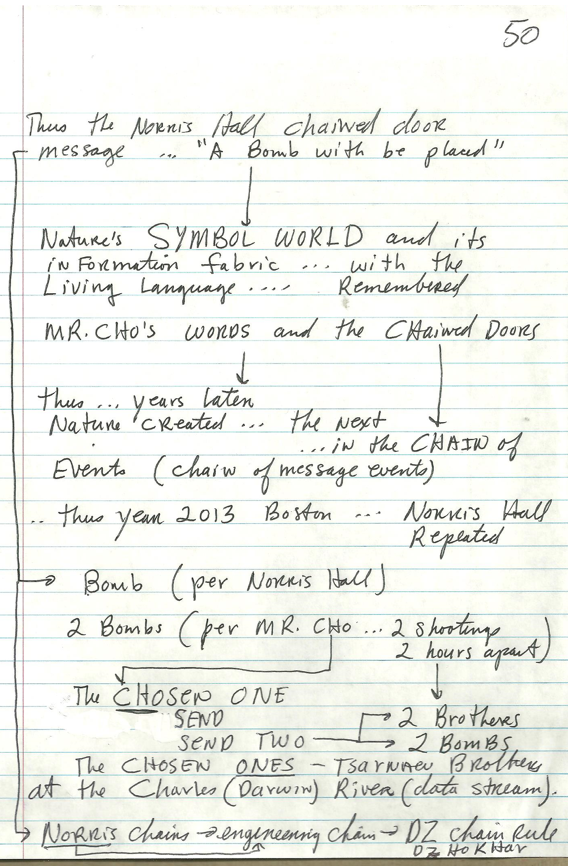 50
Thus the Norris Hall chained door
message ... "A Bomb with be placed"
Nature's SYMBOL WORLD and its
inFormation fabric ... with the
Living Language .... Remembered
MR. CHO'S WORDS and the CHained Doors
thus ... years later
Nature created ... the next
... in the CHAIN of
Events (chain of message events)
.. thus year 2013 Boston ... Norris Hall
Repeated
Bomb (per Norris Hall)
2 Bombs (per MR. CHO ... 2 shootings
2 hours apart)
The CHOSEN ONE
SEND
2 Brothers
SEND TWO
2 BOMBS
The CHOSEN ONES - TSARNAEV Brothers
at the Charles (Darwin) River (data stream).
Norris chains → engineering chain → DZ chain Rule
DZ HOKHAR